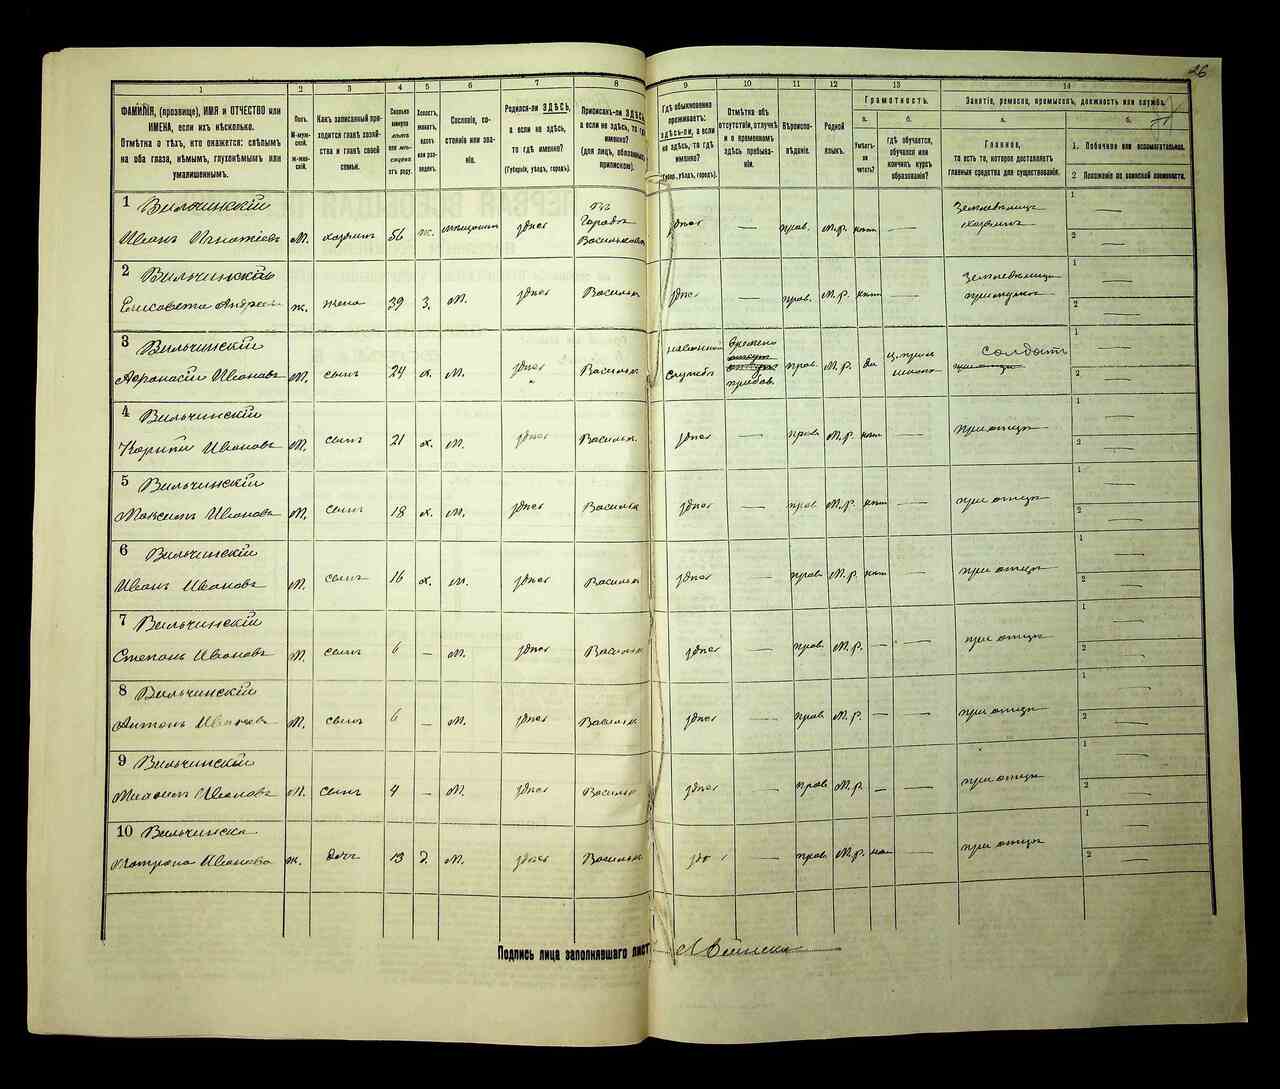 26
1 2 3 4 5 6 7 8 9 10 11 12 13 14
ФАМИЛІЯ, (прозвище), ИМЯ и ОТЧЕСТВО или
ИМЕНА, если ихъ нѣсколько.
Отмѣтка о тѣхъ, кто окажется: слѣпымъ
на оба глаза, нѣмымъ, глухонѣмымъ или
умалишеннымъ.
Полъ.
М-муж-
ской.
ж-жен-
скій.
Какъ записанный при-
ходится главѣ хозяй-
ства и главѣ своей
семьи.
Сколько
минуло
лѣтъ
или мѣ-
сяцевъ
отъ роду.
Холостъ,
женатъ,
вдовъ
или раз-
веденъ.
Сословіе, со-
стояніе или зва-
ніе.
Родился-ли ЗДѢСЬ,
а если не здѣсь,
то гдѣ именно?
(Губернія, уѣздъ, городъ).
Приписанъ-ли ЗДѢСЬ,
а если не здѣсь, то гдѣ
именно?
(для лицъ, обязанныхъ
припискою).
Гдѣ обыкновенно
проживаетъ:
ЗДѢСЬ-ЛИ, а если
не здѣсь, то гдѣ
именно?
(Губерн., уѣздъ, городъ).
Отмѣтка объ
отсутствіи, отлучкѣ
и о временномъ
здѣсь пребыва-
ніи.
Вѣроиспо-
вѣданіе.
Родной
языкъ.
Грамотность.
а.
Умѣетъ-
ли
читать?
б.
гдѣ обучается,
обучался или
кончилъ курсъ
образованія?
Занятіе, ремесло, промыселъ, должность или служба.
а.
Главное,
то есть то, которое доставляетъ
главныя средства для существованія.
б.
1. Побочное или вспомогательное.
2 Положеніе по воинской повинности.
1 Вильчинскій
Иванъ Игнатіевъ М. хозяинъ 56 ж. мѣщанинъ здѣсь
въ
городѣ
Васильковѣ
здѣсь — прав. М.р. нѣтъ —
Земледѣлецъ
хозяинъ
1 —
2 —
2 Вильчинскій
Елисавета Андреева ж. жена 39 з. М. здѣсь Васильк здѣсь — прав. М.р. нѣтъ —
1 —
2 —
3 Вильчинскій
Афанасій Ивановъ М. сынъ 24 х. М. здѣсь Васильк
службѣ
Времено
прибыв.
прав. М.р. да
солдатъ
1 —
2 —
4 Вильчинскій
Ивановъ М. сынъ 21 х. М. здѣсь Васильк здѣсь — прав. М.р. нѣтъ — при отцѣ
1 —
2 —
5 Вильчинскій
Максимъ Ивановъ М. сынъ 18 х. М. здѣсь Васильк здѣсь — прав М.р. нѣтъ — при отцѣ
1 —
2 —
6 Вильчинскій
Иванъ Ивановъ М. сынъ 16 х. М. здѣсь Васильк здѣсь — прав М.р. нѣтъ — при отцѣ
1 —
2 —
7 Вильчинскій
Степанъ Ивановъ М. сынъ 6 — М. здѣсь Васильк здѣсь — прав. М.р. — — при отцѣ
1 —
2 —
8 Вильчинскій
Антонъ Ивановъ М. сынъ 6 — М. здѣсь Васильк здѣсь — прав. М.р. — — при отцѣ
1 —
2 —
9 Вильчинскій
Ивановъ М. сынъ 4 — М. здѣсь Васильк здѣсь — прав М.р. — — при отцѣ
1 —
2 —
10 Вильчинска
Матрона Иванова ж. дочь 13 д. М. здѣсь Васильк — прав М.р. — при отцѣ
1 —
2 —
Подпись лица заполнявшаго лист